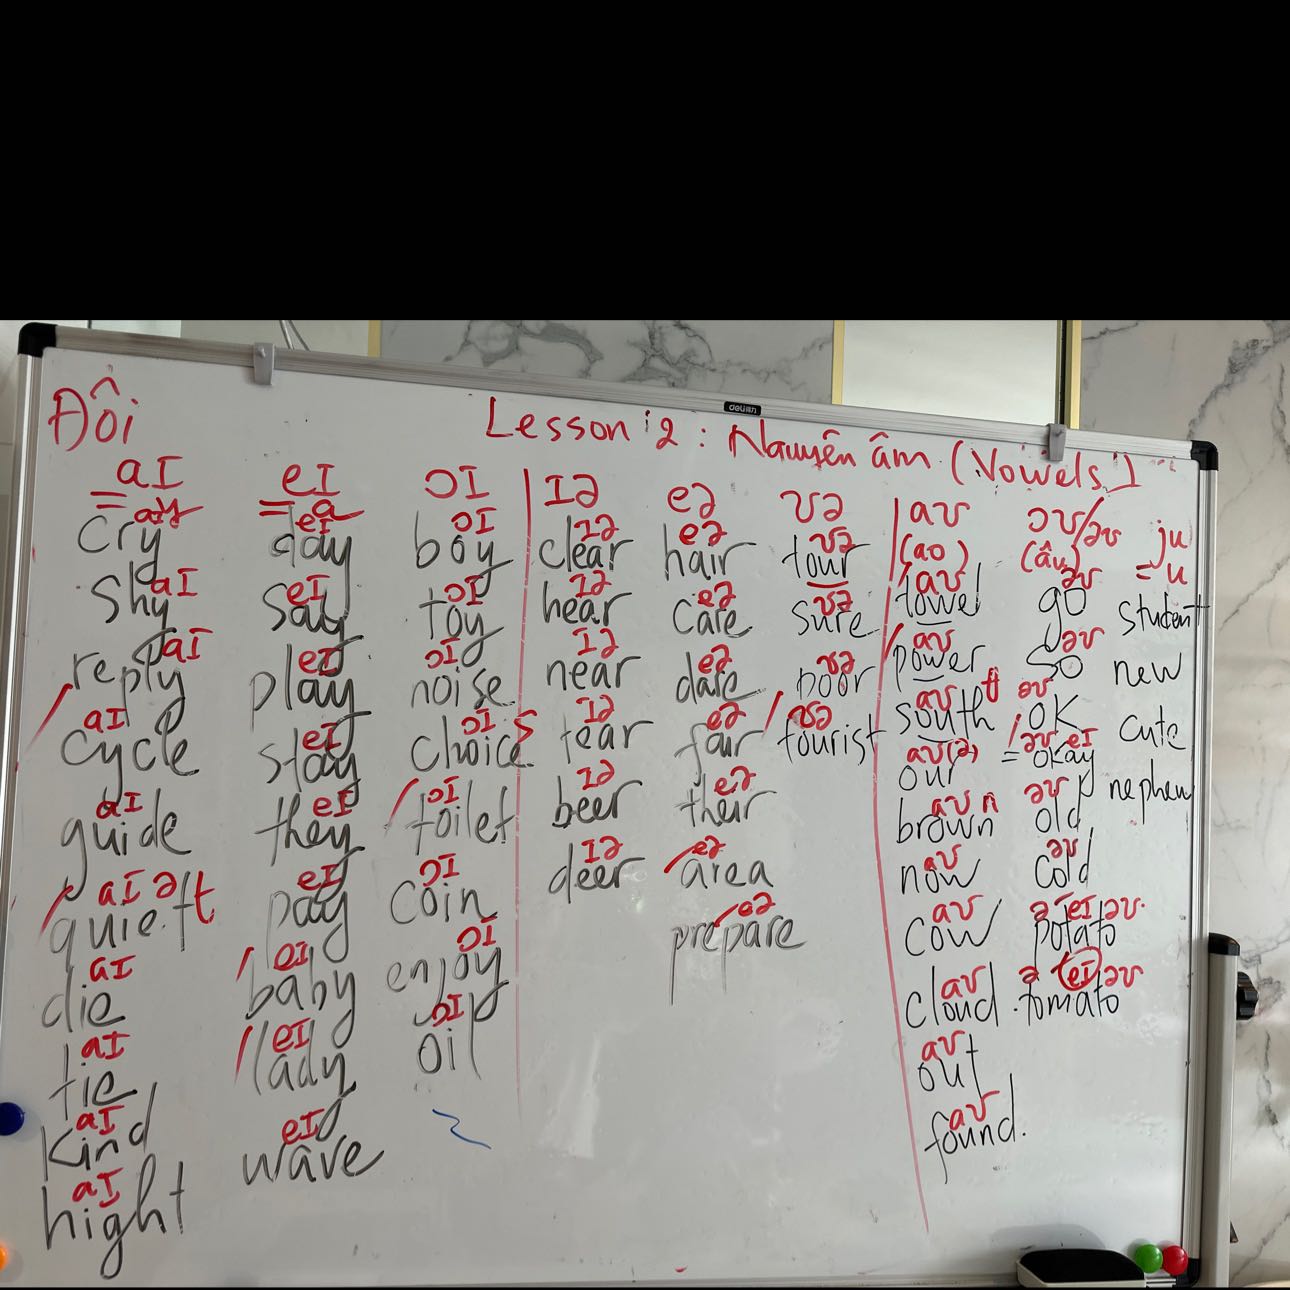 deli得力
Đôi
Lesson 2 : Nguyên âm (Vowels)
aɪ
= ay
cry
aɪ
shy
aɪ
reply
aɪ
cycle
aɪ
guide
aɪ ə t
quiet
aɪ
die
aɪ
tie
aɪ
kind
aɪ
hight
eɪ
= a
eɪ
day
eɪ
say
eɪ
play
eɪ
stay
eɪ
they
eɪ
pay
eɪ
baby
eɪ
lady
eɪ
wave
ɔɪ
ɔɪ
boy
ɔɪ
toy
ɔɪ
noise
ɔɪ s
choice
ɔɪ
toilet
ɔɪ
coin
ɔɪ
enjoy
ɔɪ
oil
ɪə
ɪə
clear
ɪə
hear
ɪə
near
ɪə
tear
ɪə
beer
ɪə
deer
eə
eə
hair
eə
care
eə
dare
eə
fair
eə
their
eə
area
eə
prepare
ʊə
ʊə
tour
ʊə
sure
ʊə
poor
ʊə
tourist
aʊ
(ao)
aʊ
towel
aʊ
power
aʊ θ
south
aʊ(ə)
our
aʊ n
brown
aʊ
now
aʊ
cow
aʊ
cloud
aʊ
out
aʊ
found.
ɔʊ/əʊ
(âu)
əʊ
go
əʊ
so
əʊ
OK
əʊ eɪ
= okay
əʊ
old
əʊ
cold
ə eɪ əʊ
potato
ə eɪ əʊ
tomato
ju
= u
student
new
cute
nephew